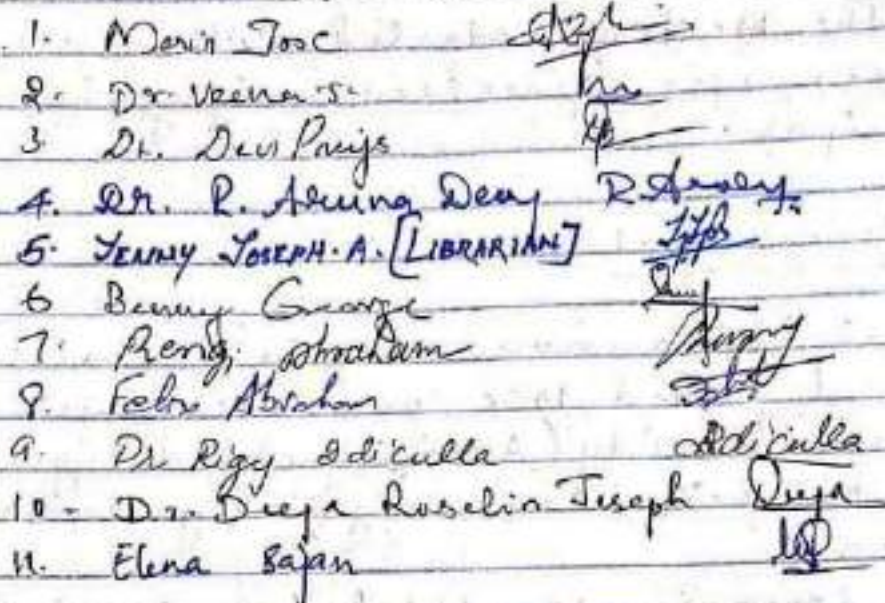 1. Merin Jose
2. Dr. Veena S.
3. Dr. Devi Priya
4. Dr. R. Aruna Devy R.Aruna
5. JENNY JOSEPH. A. [LIBRARIAN]
6 Benny George
7. Rengi Abraham
8. Felix Abraham
9. Dr Rigy Idiculla Idiculla
10. Dr. Deeja Roselin Joseph Deeja
11. Elena Sajan